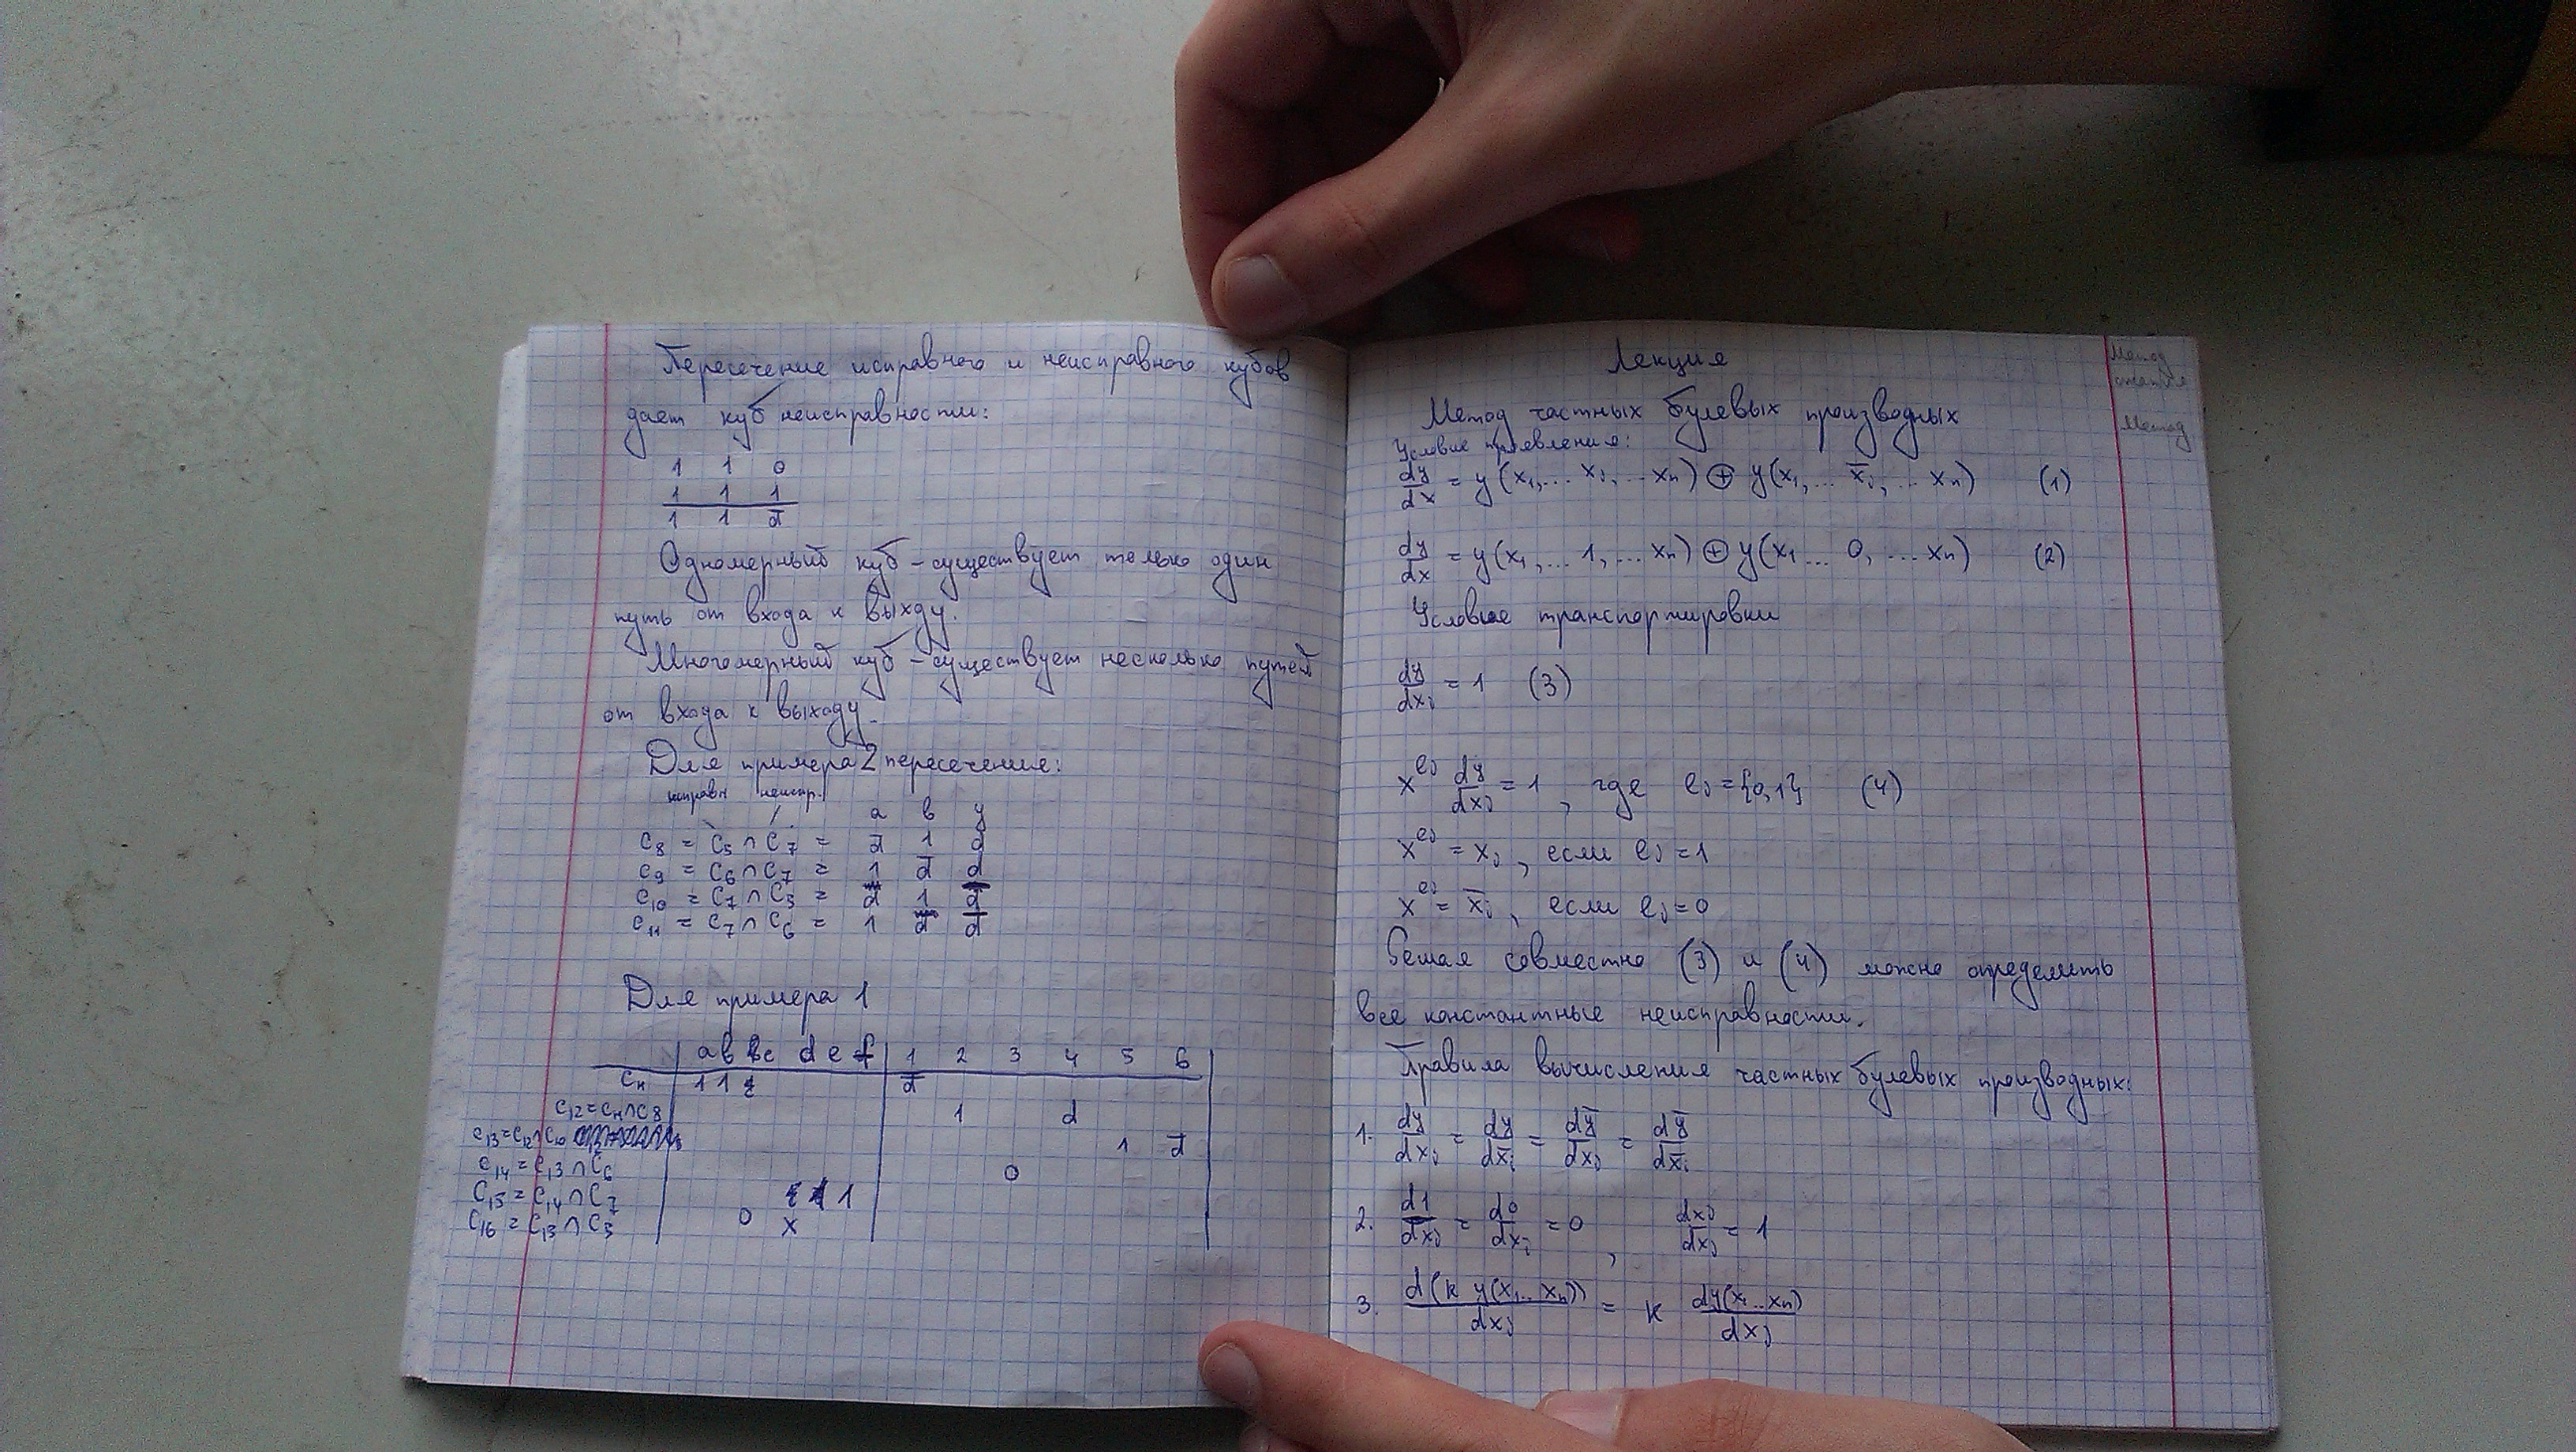 Пересечение исправного и неисправного кубов
дает куб неисправности:
1 1 0
1 1 1
1 1 d̅
Одномерный куб – существует только один
путь от входа к выходу.
Многомерный куб – существует несколько путей
от входа к выходу.
Для примера 2 пересечение:
исправн неиспр.
a b y
c₈ = c₅ ∩ c₇ = d̅ 1 d
c₉ = c₆ ∩ c₇ = 1 d̅ d
c₁₀ = c₇ ∩ c₅ = d 1 d̅
c₁₁ = c₇ ∩ c₆ = 1 d d̅
Для примера 1
a b c d e f 1 2 3 4 5 6
cн 1 1 d̅
c₁₂ = cн ∩ c₈ 1 d
c₁₃ = c₁₂ ∩ c₁₀ 1 d̅
c₁₄ = c₁₃ ∩ c₆ 0
c₁₅ = c₁₄ ∩ c₇ 1
c₁₆ = c₁₃ ∩ c₃ 0 x
Лекция
Метод частных булевых производных
Условие проявления:
dy/dx = y(x₁,... xⱼ,... xₙ) ⊕ y(x₁,... x̅ⱼ,... xₙ) (1)
dy/dx = y(x₁,... 1,... xₙ) ⊕ y(x₁ ... 0,... xₙ) (2)
Условие транспортировки
dy/dxⱼ = 1 (3)
x^eⱼ dy/dxⱼ = 1, где eⱼ = {0,1} (4)
x^eⱼ = xⱼ, если eⱼ = 1
x^eⱼ = x̅ⱼ, если eⱼ = 0
Решая совместно (3) и (4) можно определить
все константные неисправности.
Правила вычисления частных булевых производных:
1. dy/dxⱼ = dy/dx̅ⱼ = dy̅/dxⱼ = dy̅/dx̅ⱼ
2. d1/dxⱼ = d0/dxⱼ = 0, dxⱼ/dxⱼ = 1
3. d(k y(x₁..xₙ))/dxⱼ = k dy(x₁..xₙ)/dxⱼ
Метод
Метод